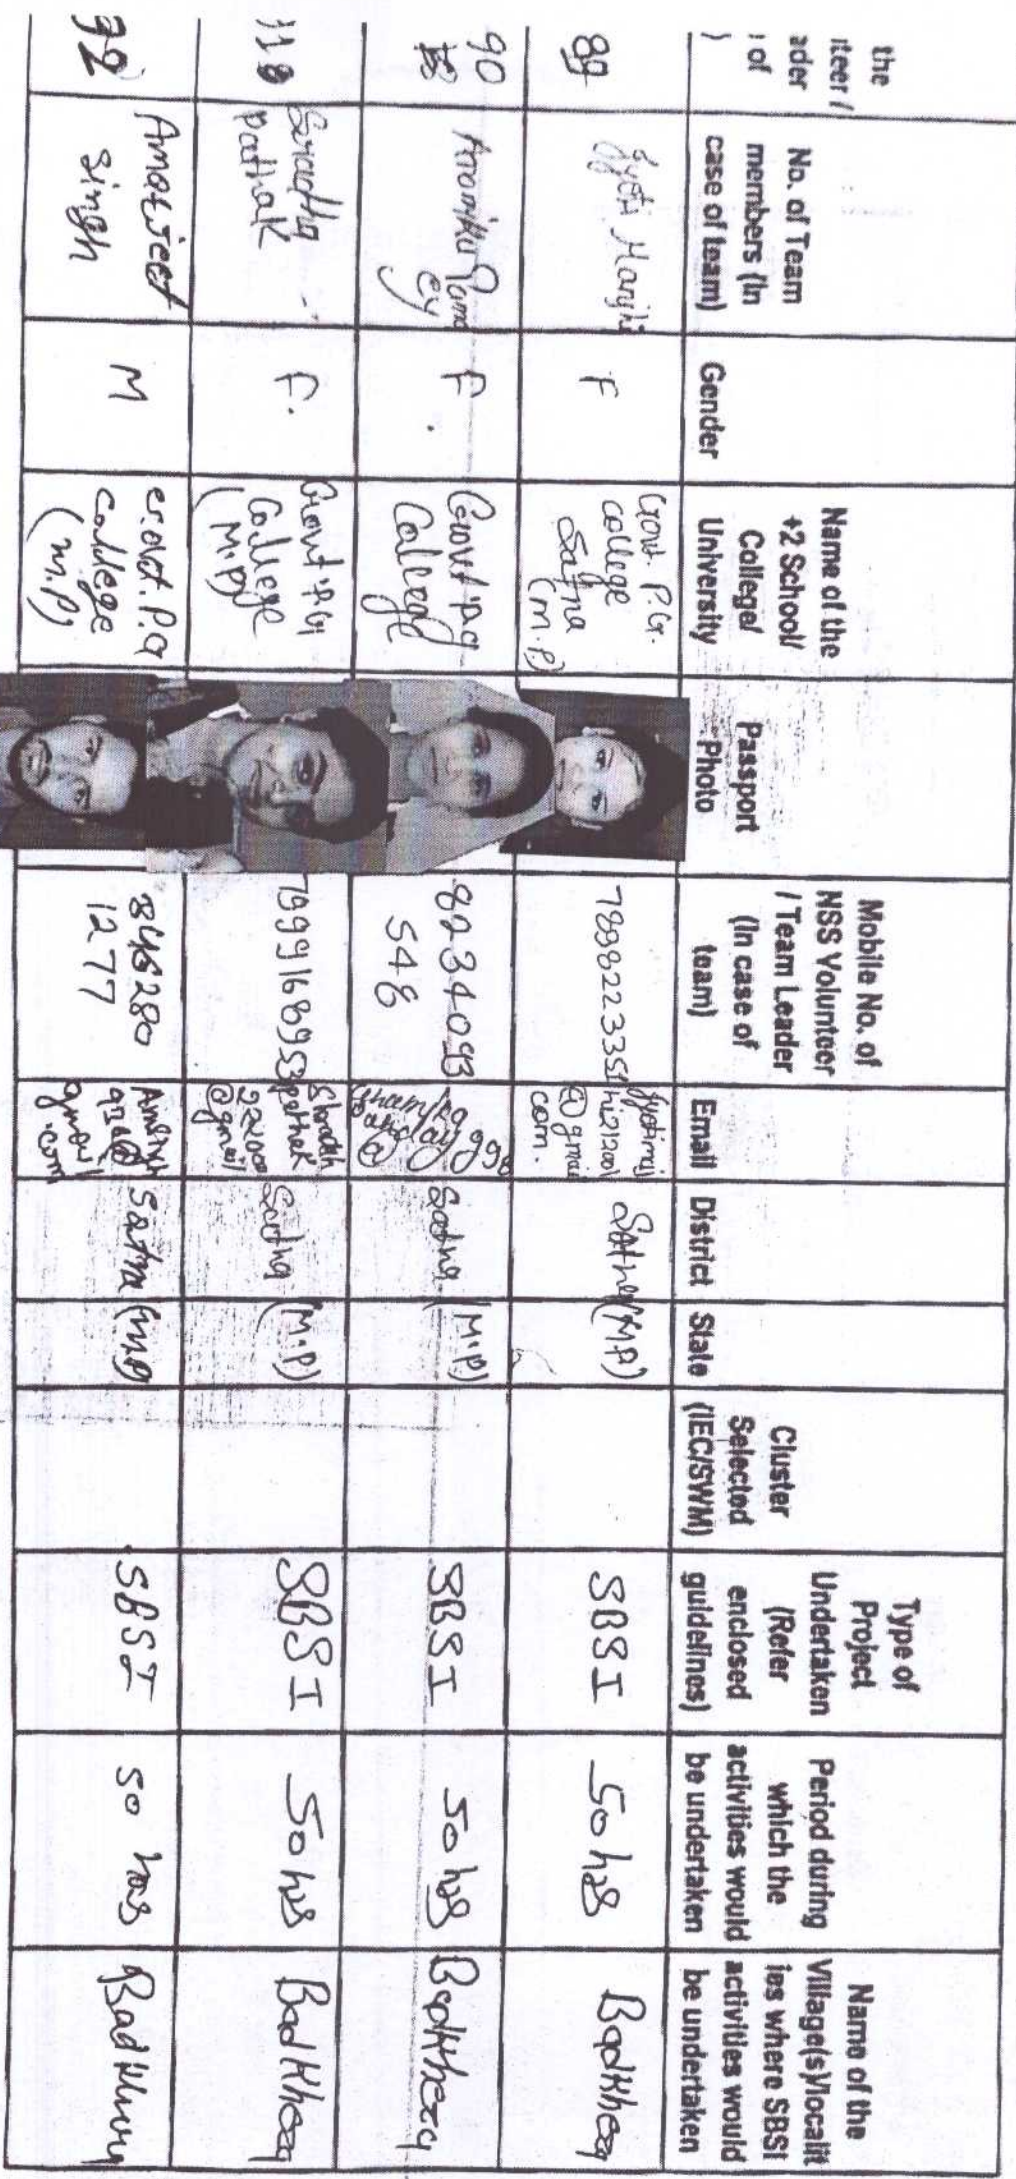 the
iteer /
ader
ı of
)
No. of Team
members (In
case of team)
Gender
Name of the
+2 School/
College/
University
Passport
Photo
Mobile No. of
NSS Volunteer
/ Team Leader
(In case of
team)
Email
District
State
Cluster
Selected
(IEC/SWM)
Type of
Project
Undertaken
(Refer
enclosed
guidelines)
Period during
which the
activities would
be undertaken
Name of the
Village(s)/localit
ies where SBSI
activities would
be undertaken
89
Jyoti
F
Govt. P.G.
college
Satna
(M.P)
7898223351
@gmail
com.
Satna
(M.P)
SBSI
50 hrs
Badkhera
90
F.
Govt PG
College
8234093
548
Satna
(M.P)
SBSI
50 hrs
Badkhera
pathak
F.
Govt PG
College
(M.P)
7999168953
@gmail
Satna
(M.P)
SBSI
50 hrs
Badkhera
92
Amarjeet
Singh
M
College
(M.P)
1277
936@
gmail
.com
Satna
(M.P)
SBSI
50 hrs